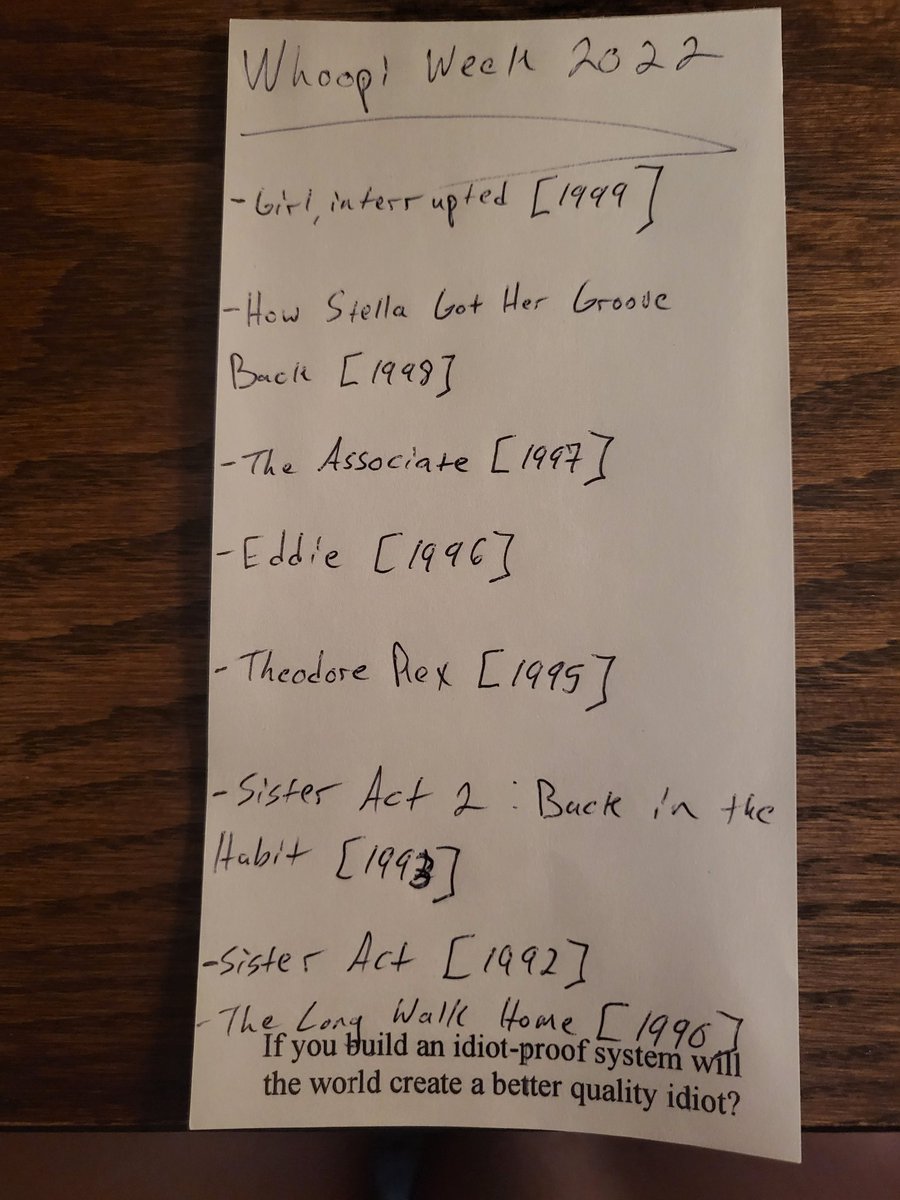 Whoopi Week 2022
- Girl, interrupted [1999]
- How Stella Got Her Groove
Back [1998]
- The Associate [1997]
- Eddie [1996]
- Theodore Rex [1995]
- Sister Act 2 : Back in the
Habit [1993]
- Sister Act [1992]
- The Long Walk Home [1990]
If you build an idiot-proof system will
the world create a better quality idiot?